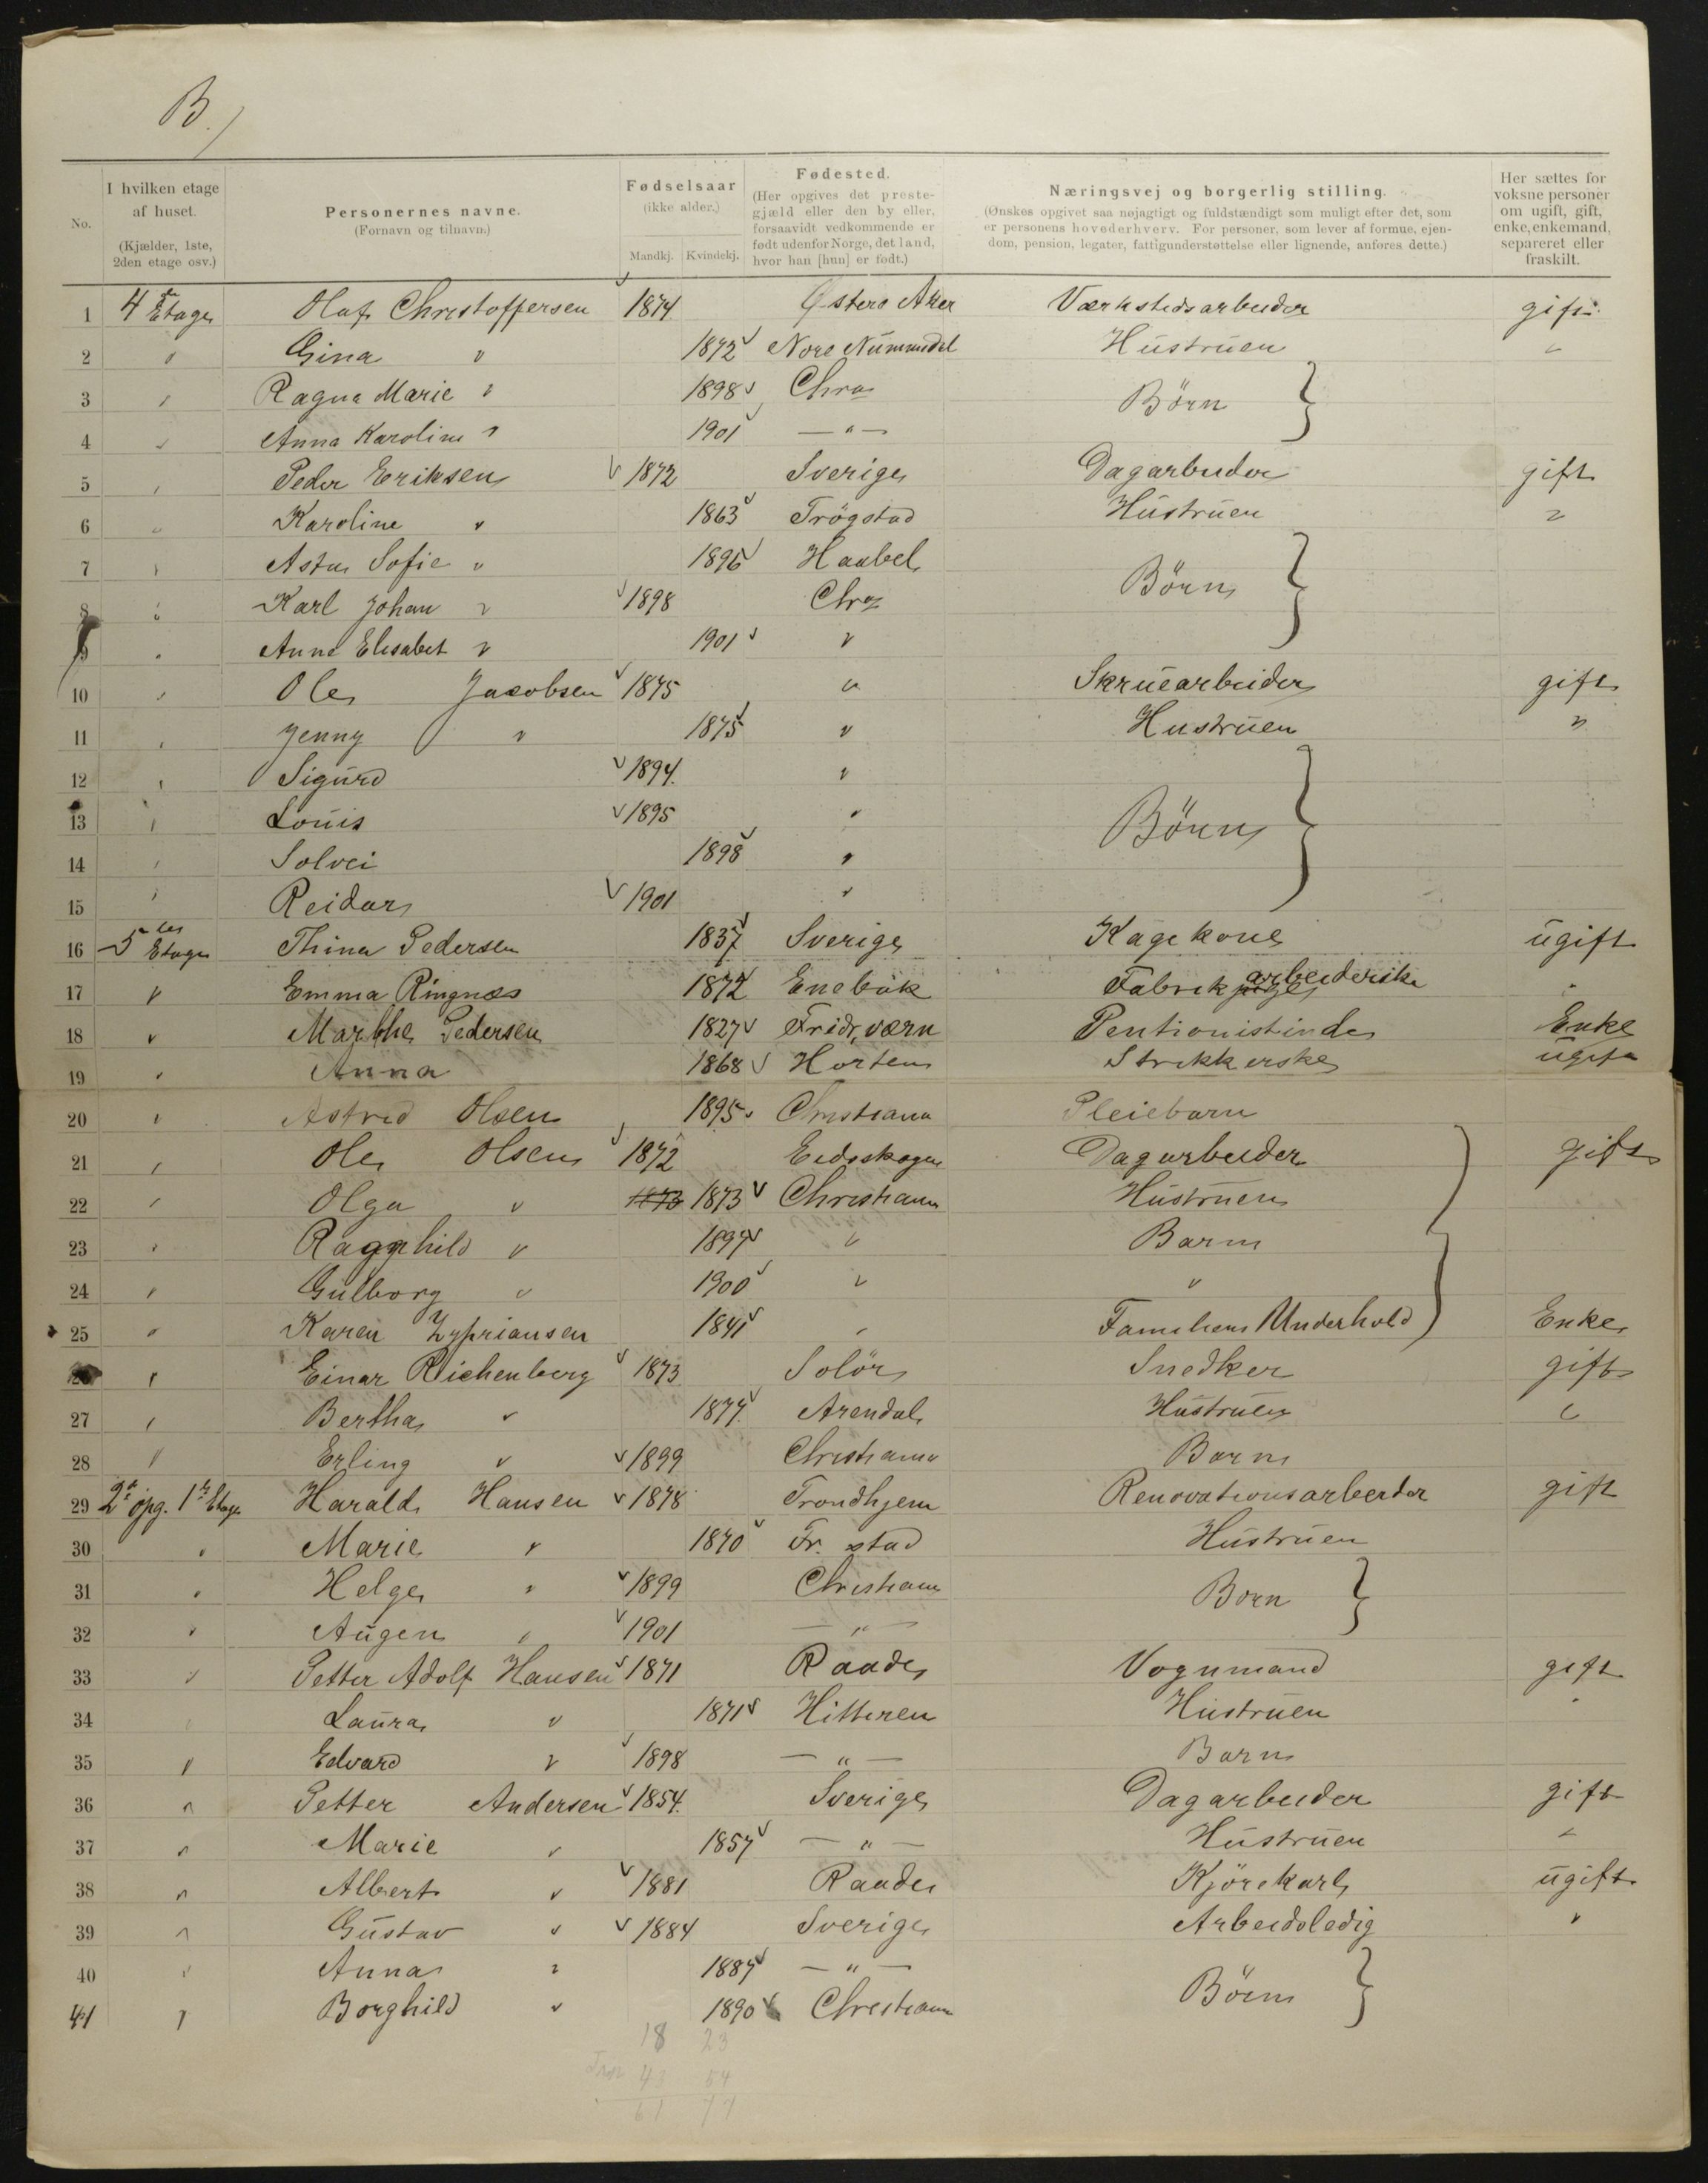 B.)
No.
I hvilken etage af huset. (Kjælder, 1ste, 2den etage osv.)
Personernes navne. (Fornavn og tilnavn.)
Fødselsaar (ikke alder.) Mandkj. Kvindekj.
Fødested. (Her opgives det prestegjæld eller den by eller, forsaavidt vedkommende er født udenfor Norge, det land, hvor han [hun] er født.)
Næringsvej og borgerlig stilling. (Ønskes opgivet saa nøjagtigt og fuldstændigt som muligt efter det, som er personens hovederhverv. For personer, som lever af formue, ejendom, pension, legater, fattigunderstøttelse eller lignende, anføres dette.)
Her sættes for voksne personer om ugift, gift, enke, enkemand, separeret eller fraskilt.
1 4de Etage Olaf Christoffersen 1874 Østere Aker Værkstedsarbeider gift
2 " Gina " 1872 Nore Nummedal Hustruen "
3 " Ragna Marie " 1898 Chra Börn }
4 " Anna Karoline " 1901 — " —
5 " Peder Eriksen 1872 Sverige Dagarbeider gift
6 " Karoline " 1863 Trögstad Hustruen "
7 " Asta Sofie " 1896 Haabel Börn }
8 " Karl Johan " 1898 Chra
9 " Anna Elisabet " 1901 "
10 " Ole Jacobsen 1875 " Skruearbeider gift
11 " Jenny " 1875 " Hustruen "
12 " Sigurd 1894. " Börn }
13 " Louis 1895 "
14 " Solvei 1898 "
15 " Reidar 1901 "
16 5te Etage Thina Pedersen 1837 Sverige Kagekone ugift
17 " Emma Ringnæs 1872 Enebak Fabrikarbeiderske "
18 " Marthe Pedersen 1827 Fridr,værn Pentionistinde Enke
19 " Anna 1868 Horten Strikkerske ugift
20 " Astrid Olsen 1895 Christiania Pleiebarn
21 " Ole Olsen 1872 Eidsskogen Dagarbeider gift
22 " Olga " 1873 1873 Christiania Hustruen
23 " Ragnhild " 1897 " Barn
24 " Gulborg " 1900 " "
25 " Karen Zypriansen 1841 " Familiens Underhold Enke
" Einar Richenberg 1873 Solör Snedker gift
27 " Bertha " 1877 Arendal Hustruen "
28 " Erling " 1899 Christiania Barn
29 2de opg. 1ste Etage Harald Hansen 1878 Trondhjem Renovationsarbeider gift
30 " Marie " 1870 Fr. stad Hustruen
31 " Helge " 1899 Christiania Born }
32 " Augen " 1901 — " —
33 " Petter Adolf Hansen 1871 Raade Vognmand gift
34 " Laura " 1871 Hitteren Hustruen "
35 " Edvard " 1898 — " — Barn
36 " Petter Andersen 1854. Sverige Dagarbeider gift
37 " Marie " 1857 — " — Hustruen "
38 " Albert " 1881 Raade Kjörekarl ugift
39 " Gustav " 1884 Sverige Arbeidsledig "
40 " Anna " 1887 — " — Börn }
41 " Borghild " 1890 Christiania
18 23
43 54
61 77